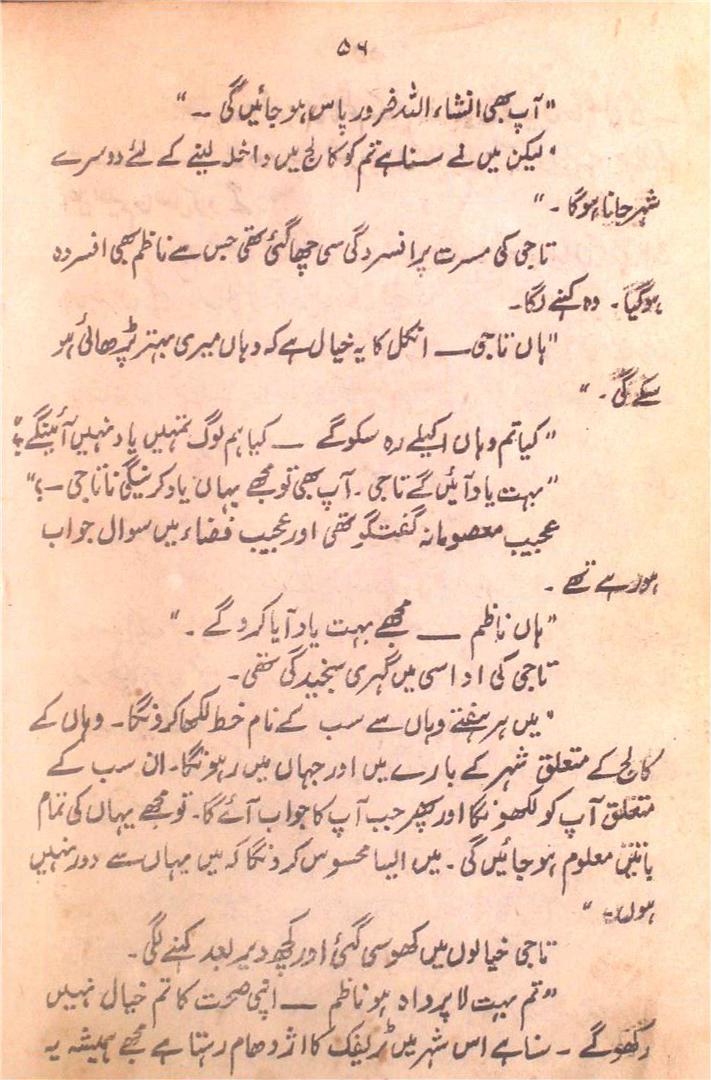 ۵۶
"آپ بھی انشاء اللہ ضرور پاس ہو جائیں گی ـ ـ"
"لیکن میں نے سنا ہے تم کو کالج میں داخلہ لینے کے لئے دوسرے
شہر جانا ہوگا ۔"
تاجی کی مسرت پر افسردگی سی چھا گئی تھی جس سے ناظم بھی افسردہ
ہوگیا۔ وہ کہنے لگا۔
"ہاں تاجی ـــ انکل کا یہ خیال ہے کہ وہاں میری بہتر پڑھائی ہو
سکے گی ۔"
"کیا تم وہاں اکیلے رہ سکو گے ـــ کیا ہم لوگ تمہیں یاد نہیں آئینگے؟"
"بہت یاد آئیں گے تاجی ۔ آپ بھی تو مجھے یہاں یاد کرینگی نا تاجی ـ؟"
عجیب معصومانہ گفتگو تھی اور عجیب فضاء میں سوال جواب
ہو رہے تھے ۔
"ہاں ناظم ـــ مجھے بہت یاد آیا کرو گے ۔"
تاجی کی اداسی میں گہری سنجیدگی تھی۔
"میں ہر ہفتے وہاں سے سب کے نام خط لکھا کرونگا۔ وہاں کے
کالج کے متعلق شہر کے بارے میں اور جہاں میں رہونگا۔ ان سب کے
متعلق آپ کو لکھونگا اور پھر جب آپ کا جواب آئے گا۔ تو مجھے یہاں کی تمام
باتیں معلوم ہو جائیں گی ۔ میں ایسا محسوس کرونگا کہ میں یہاں سے دور نہیں
ہوں۔"
تاجی خیالوں میں کھو سی گئی اور کچھ دیر بعد کہنے لگی۔
"تم بہت لا پرواہ ہو ناظم ـــ اپنی صحت کا تم خیال نہیں
رکھو گے ۔ سنا ہے اس شہر میں ٹریفک کا اژدھام رہتا ہے مجھے ہمیشہ یہ